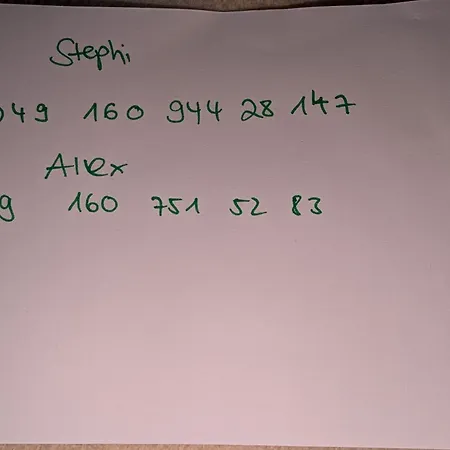 Stephi
049 160 944 28 147
Alex
9 160 751 52 83